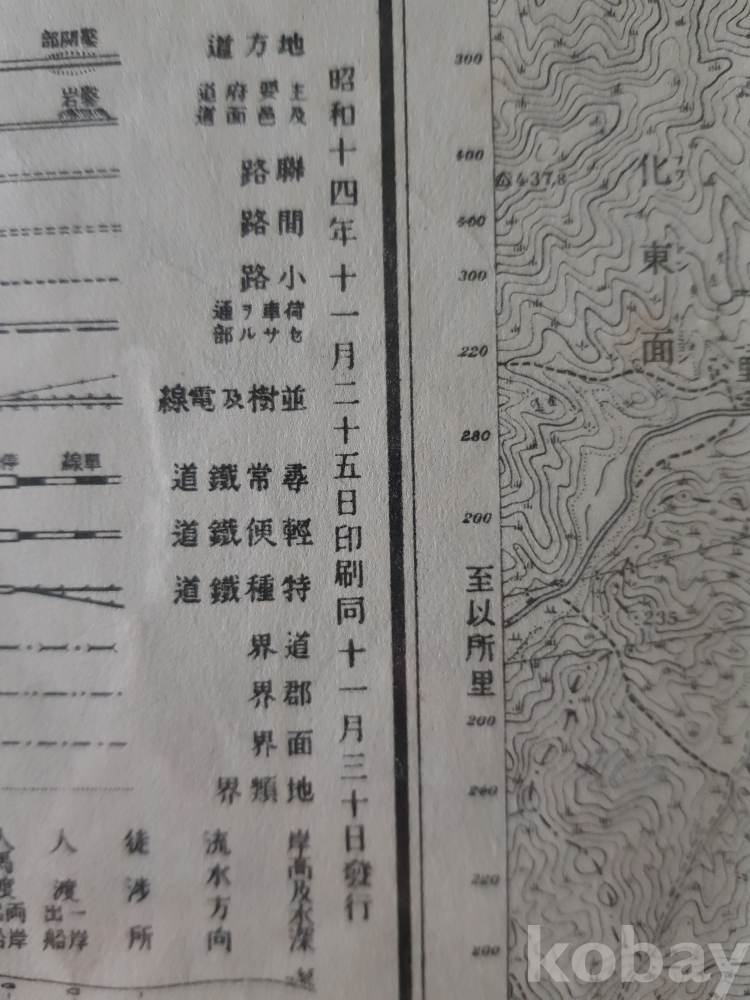 地方道
開鑿部
主要府道
及邑面道
鑿岩
聯路
間路
小路
荷車ヲ通
セサル部
並樹及電線
尋常鐵道
單線
停
輕便鐵道
特種鐵道
道界
郡界
面界
地類界
岸高及水深
流水方向
徒涉所
人渡
一出
岸船
昭和十四年十一月二十五日印刷同十一月三十日發行
300
400
400
300
220
280
200
至以所里
200
240
220
200
437.8
化東面
235
kobay